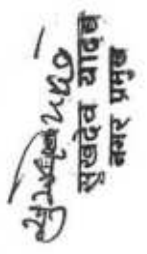 सुखदेव यादव
नगर प्रमुख